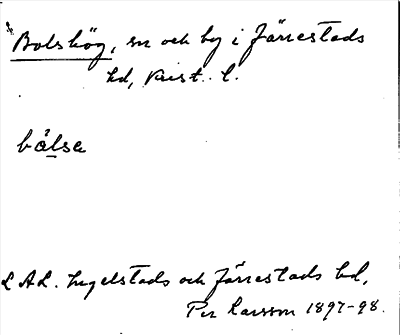 Bolshög, sn och by i Järrestads
hd, Krist. l.
bålse
LAL. Ingelstads och Järrestads hd,
Per Larsson 1897-98.